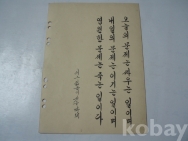 오늘의 문제는 싸우는 일이며
내일의 문제는 이기는 일이며
영원한 문제는 죽는 일이다
kobay